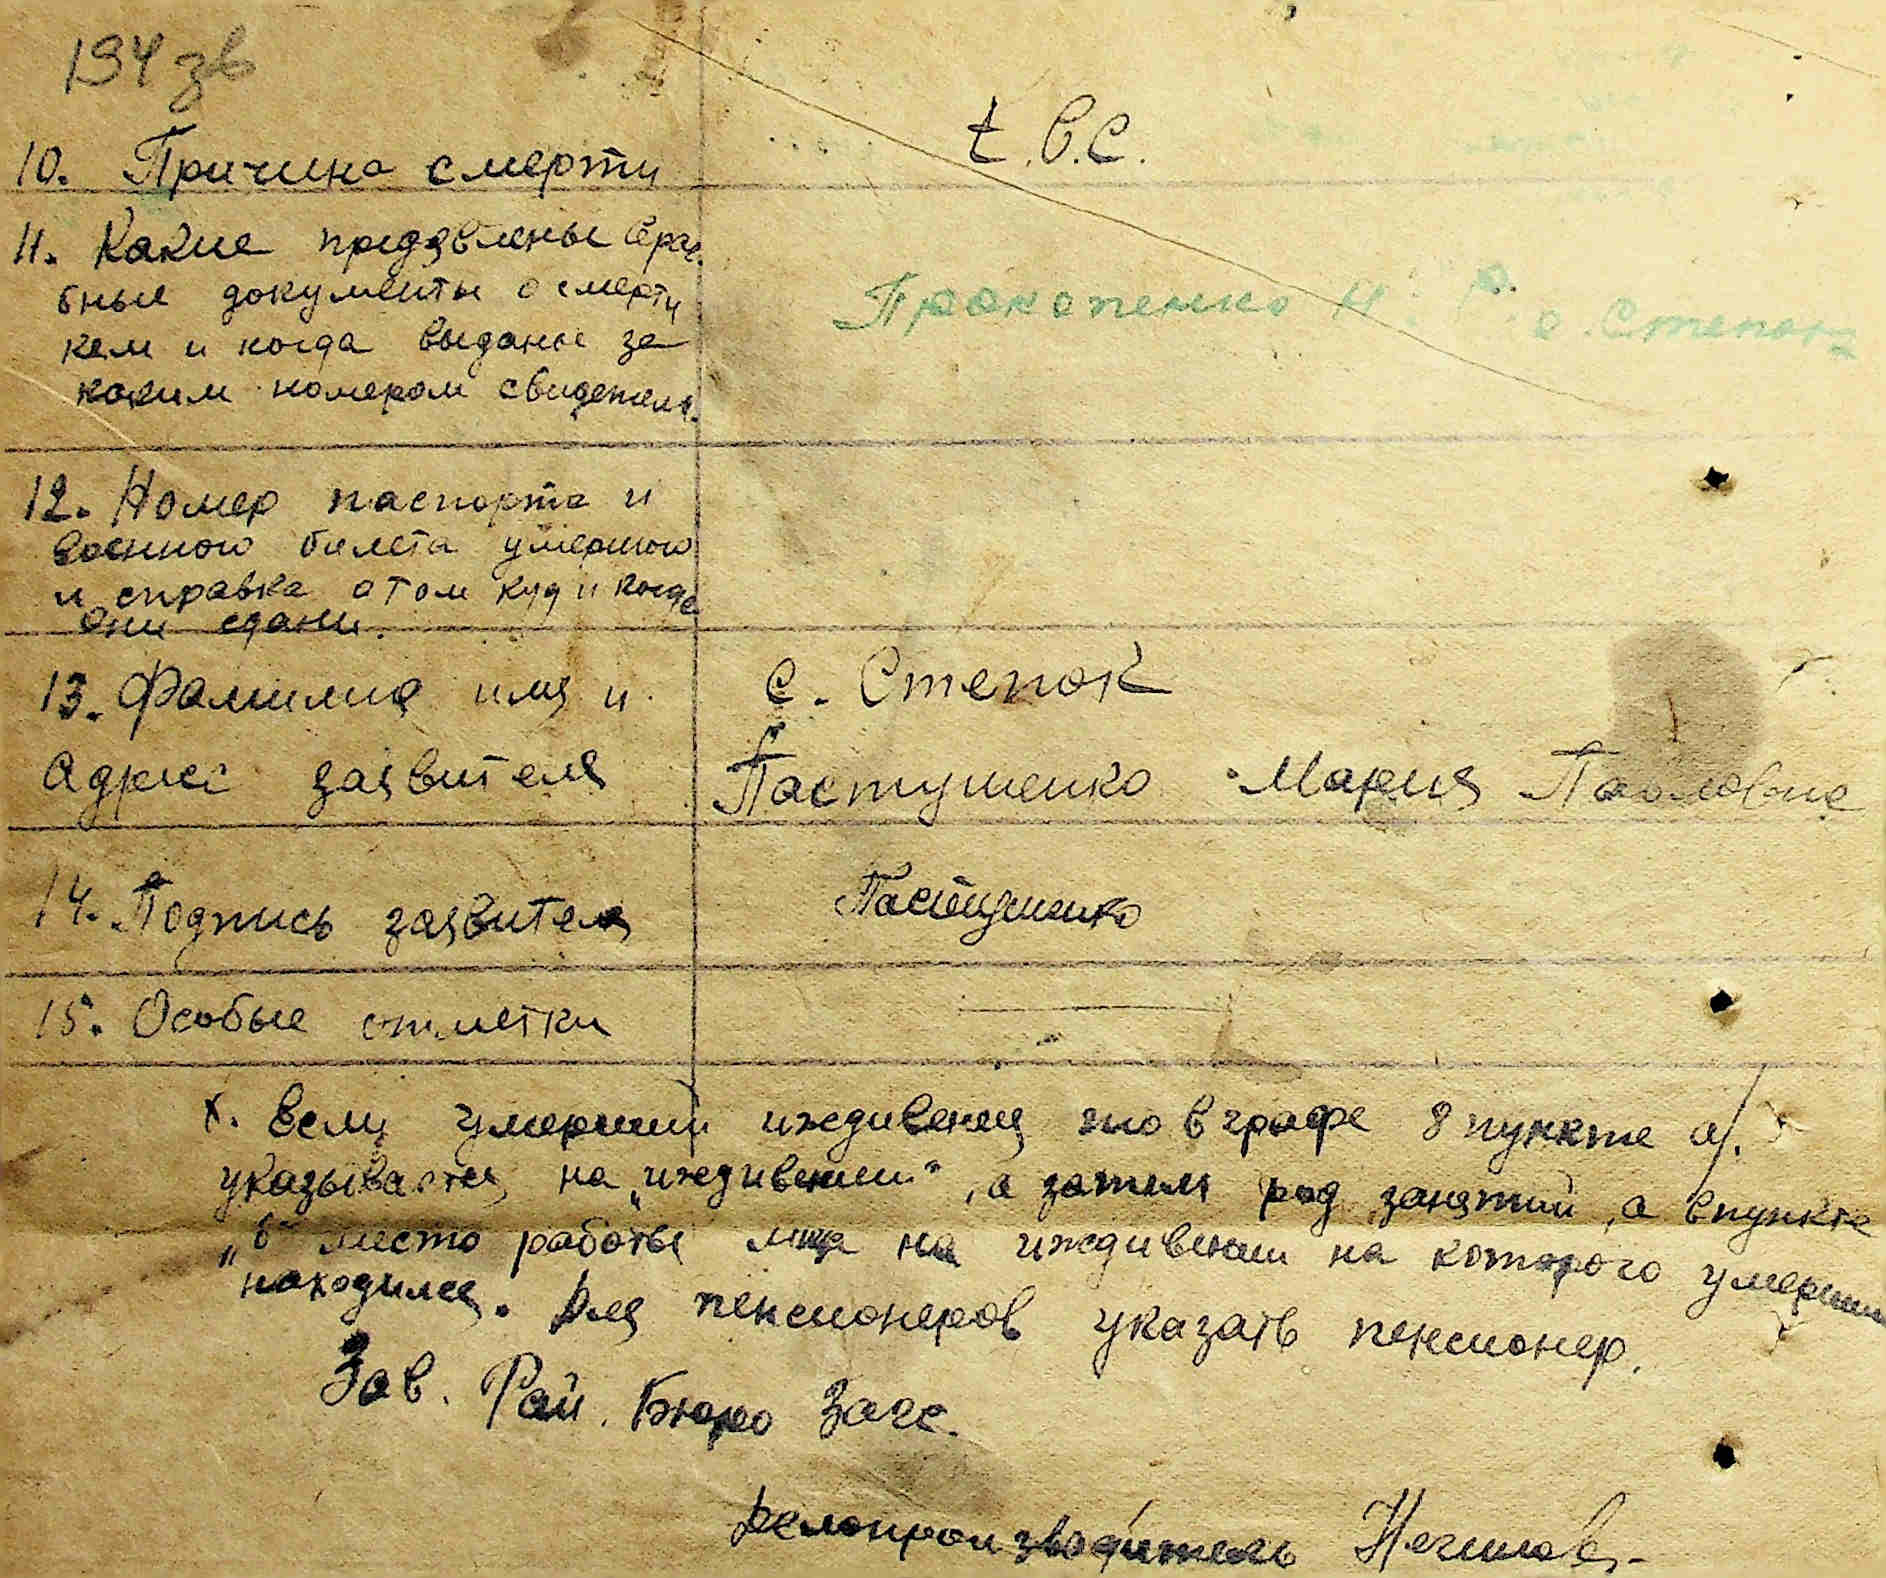 194 зв
10. Причина смерти
t.b.c.
11. Какие предявлены врач.
бные документы о смерти
кем и когда выданы за
каким номером свидетель.
Прокопенко Н. с. Степок
12. Номер паспорта и
военного билета умершого
и справка о том куд и когда
они сдани.
13. Фамилия имя и
адрес заявителя
с. Степок
Пастушенко Мария Павловне
14. Подпись заявителя
Пастушенко
15. Особые отметки
х. Если умерший иждивенец то в графе 8 пункте а/.
указывается на "иждивении", а затем род занятий, а в пункте
"б" место работы лица на иждивении на которого умерший
находился. Для пенсионеров указать пенсионер.
Зав. Рай. Бюро Загс.
Делопроизводитель